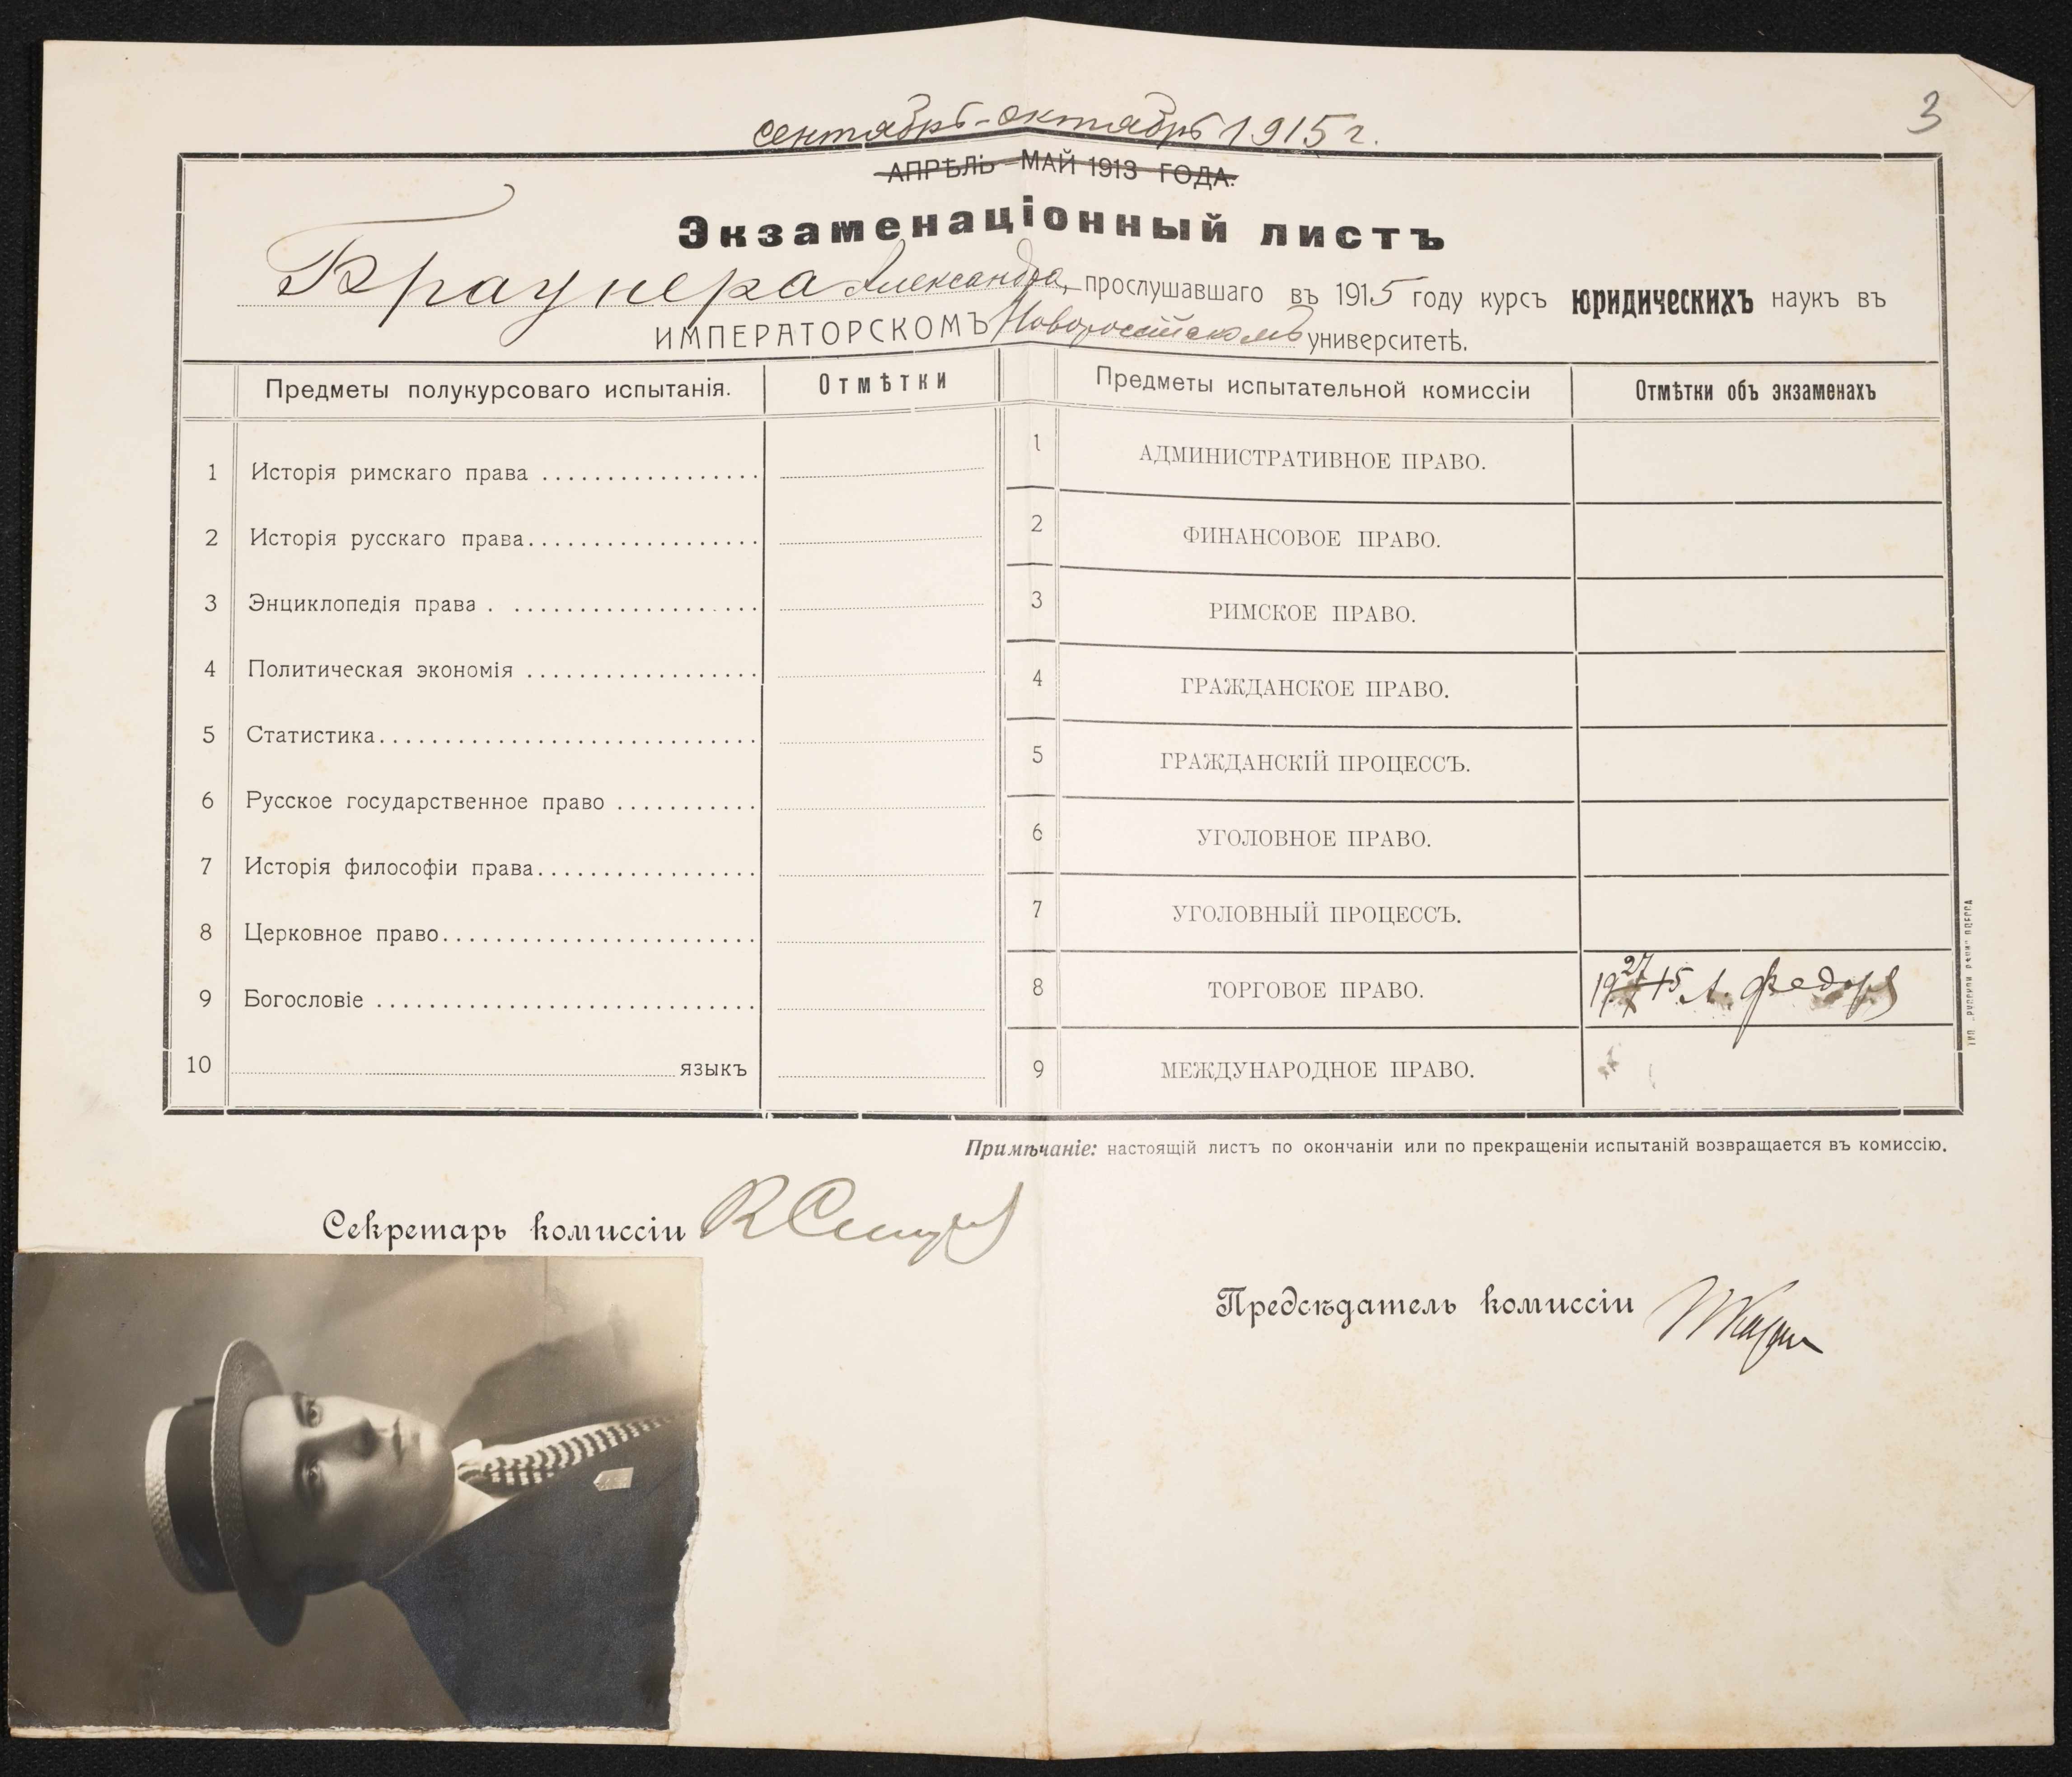 3
сентябрь-октябрь 1915 г.
АПРѢЛЬ—МАЙ 1913 ГОДА.
Экзаменаціонный листъ
Браунера Александра, прослушавшаго въ 1915 году курсъ юридическихъ наукъ въ
ИМПЕРАТОРСКОМЪ Новороссійскомъ университетѣ.
Предметы полукурсоваго испытанія. Отмѣтки Предметы испытательной комиссіи Отмѣтки объ экзаменахъ
1 Исторія римскаго права
2 Исторія русскаго права
3 Энциклопедія права
4 Политическая экономія
5 Статистика
6 Русское государственное право
7 Исторія философіи права
8 Церковное право
9 Богословіе
10 языкъ
1 АДМИНИСТРАТИВНОЕ ПРАВО.
2 ФИНАНСОВОЕ ПРАВО.
3 РИМСКОЕ ПРАВО.
4 ГРАЖДАНСКОЕ ПРАВО.
5 ГРАЖДАНСКІЙ ПРОЦЕССЪ.
6 УГОЛОВНОЕ ПРАВО.
7 УГОЛОВНЫЙ ПРОЦЕССЪ.
8 ТОРГОВОЕ ПРАВО.
9 МЕЖДУНАРОДНОЕ ПРАВО.
Примѣчаніе: настоящій листъ по окончаніи или по прекращеніи испытаній возвращается въ комиссію.
Секретарь комиссіи
Предсѣдатель комиссіи